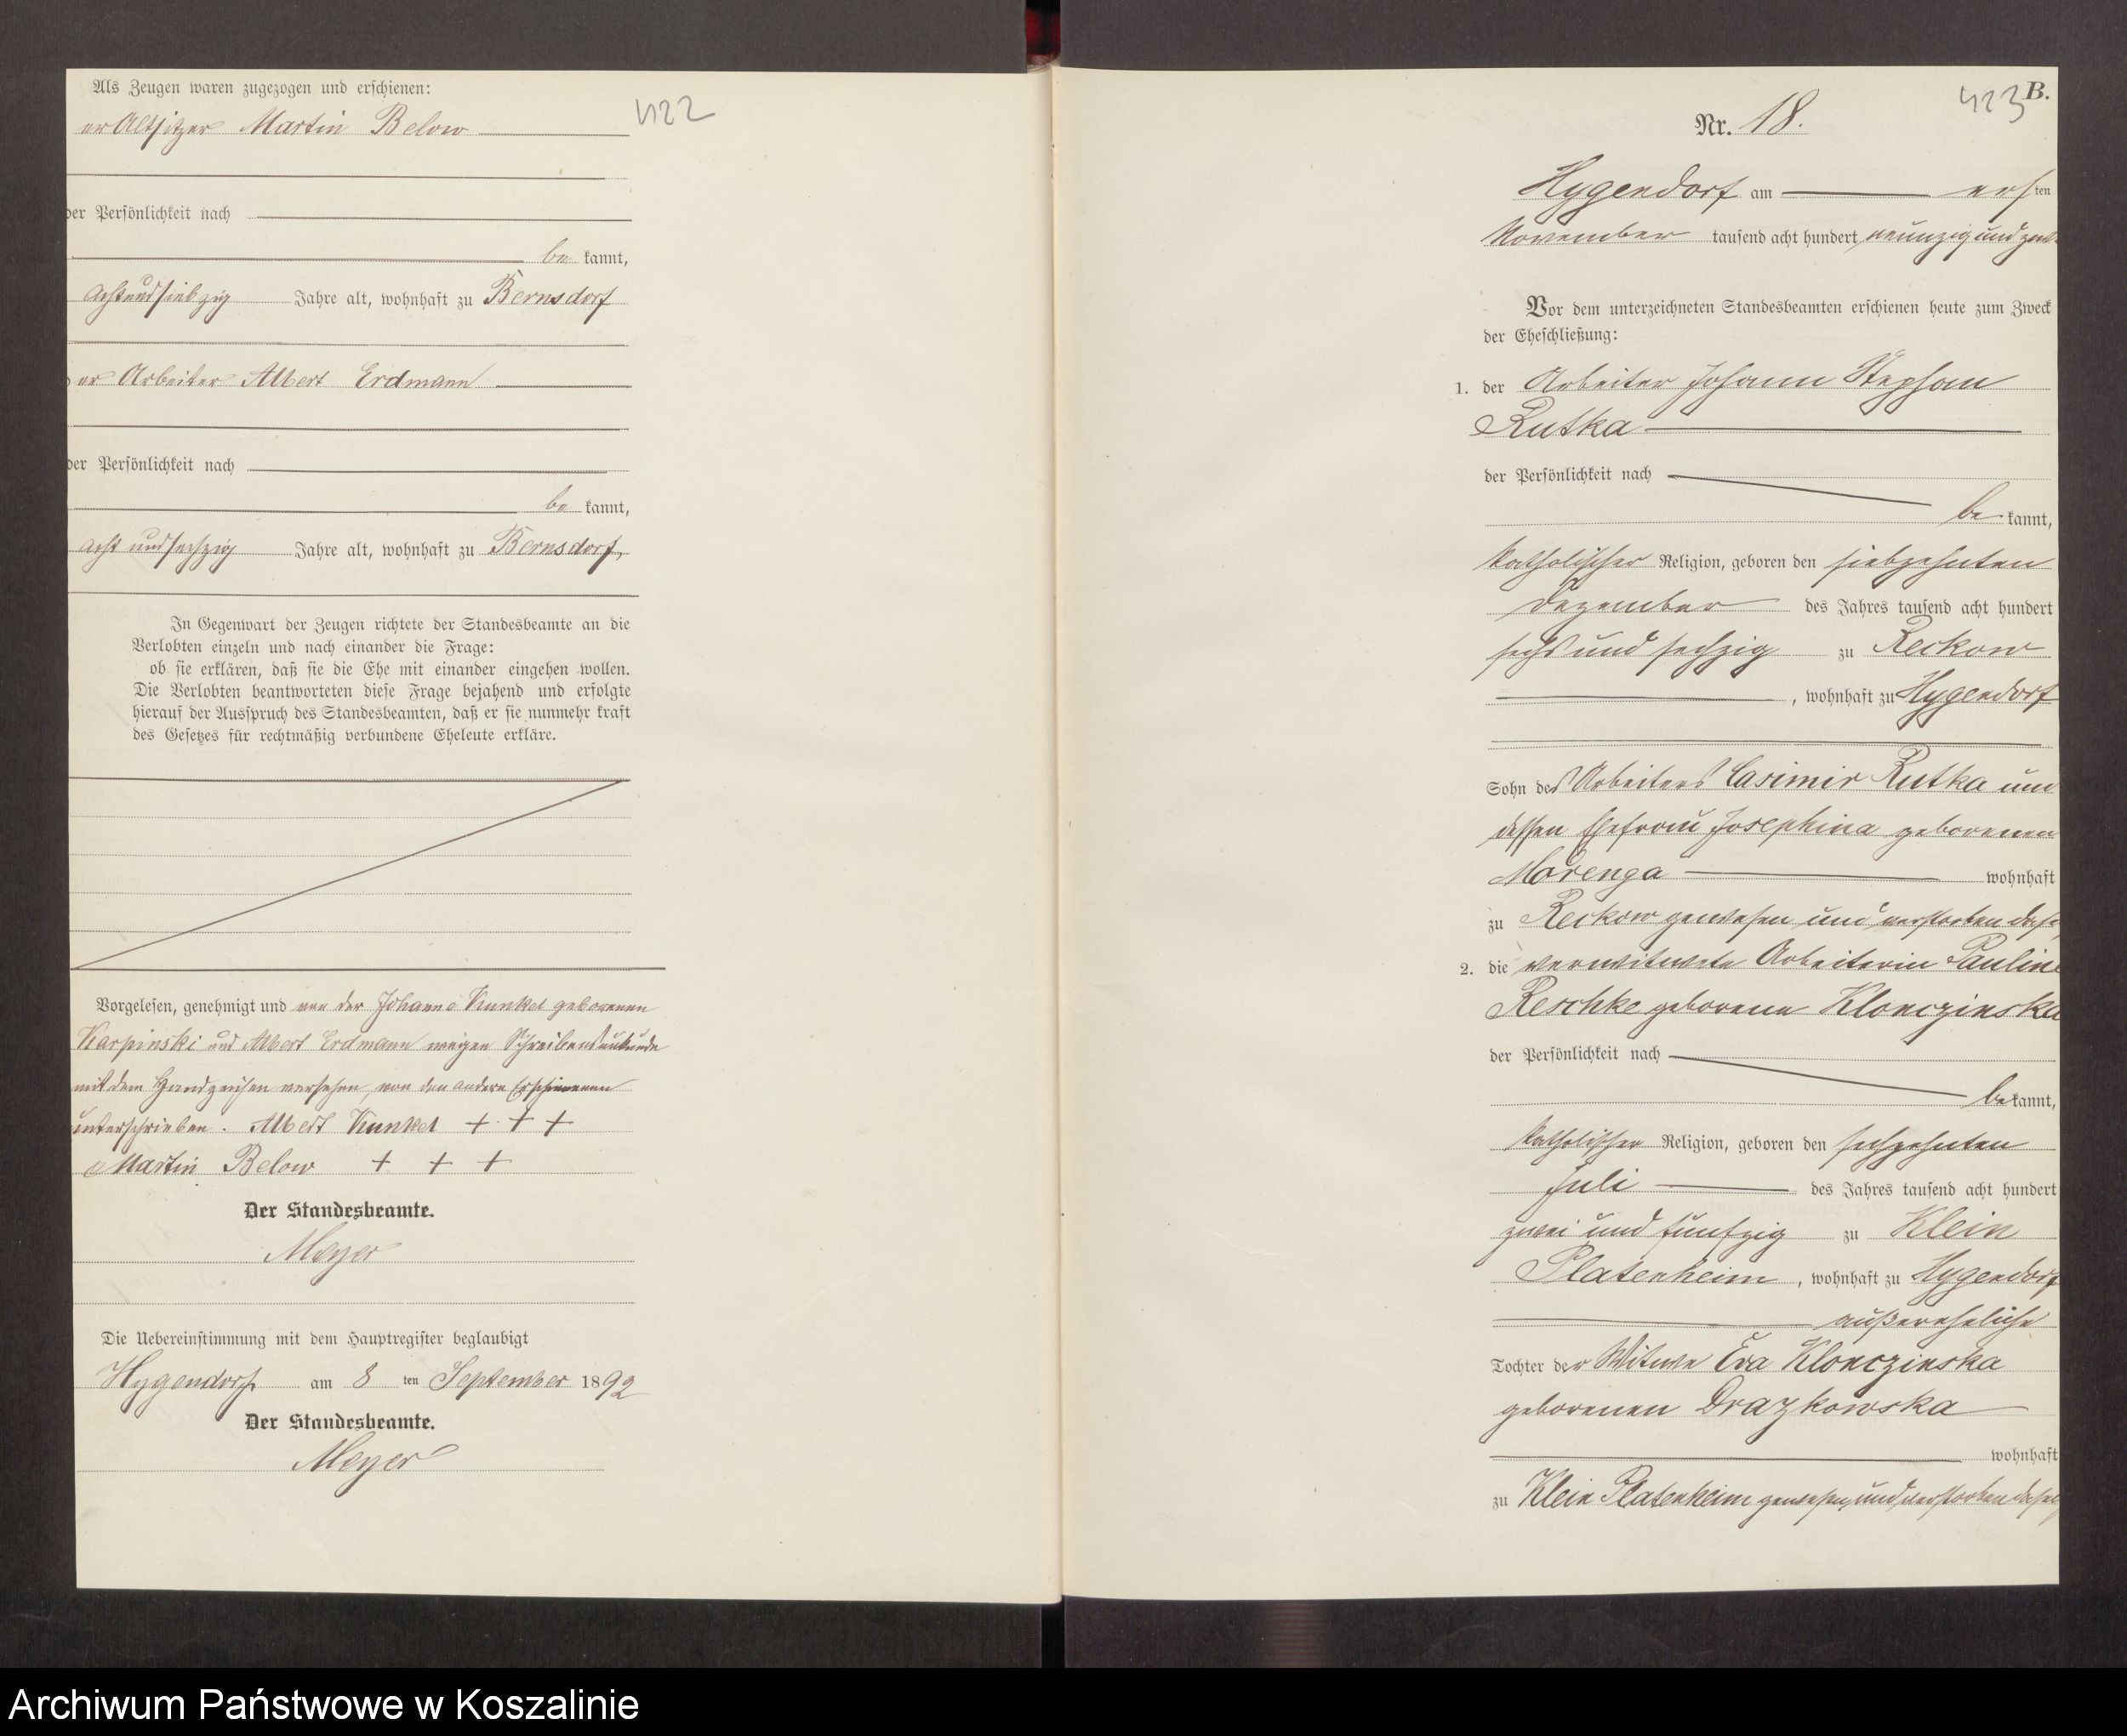 Als Zeugen waren zugezogen und erschienen:
er Altsitzer Martin Below
422
der Persönlichkeit nach
be kannt,
achtundsiebzig Jahre alt, wohnhaft zu Bernsdorf
er Arbeiter Albert Erdmann
der Persönlichkeit nach
be kannt,
acht und sechzig Jahre alt, wohnhaft zu Bernsdorf
In Gegenwart der Zeugen richtete der Standesbeamte an die
Verlobten einzeln und nach einander die Frage:
ob sie erklären, daß sie die Ehe mit einander eingehen wollen.
Die Verlobten beantworteten diese Frage bejahend und erfolgte
hierauf der Ausspruch des Standesbeamten, daß er sie nunmehr kraft
des Gesetzes für rechtmäßig verbundene Eheleute erkläre.
Vorgelesen, genehmigt und von der Johanne Kunkel geborenen
Karpinski und Albert Erdmann wegen Schreibensunkunde
mit dem Handzeichen versehen, von den andern Erschienenen
unterschrieben. Albert Kunkel + + +
Martin Below + + +
Der Standesbeamte.
Meyer
Die Uebereinstimmung mit dem Hauptregister beglaubigt
Hygendorf am 8 ten September 1892
Der Standesbeamte.
Meyer
423 B.
Nr. 18.
Hygendorf am ersten
November tausend acht hundert neunzig und zwei
Vor dem unterzeichneten Standesbeamten erschienen heute zum Zweck
der Eheschließung:
1. der Arbeiter Johann Stephan
Rutka
der Persönlichkeit nach
be kannt,
katholischer Religion, geboren den siebzehnten
Dezember des Jahres tausend acht hundert
sechs und sechzig zu Reckow
, wohnhaft zu Hygendorf
Sohn des Arbeiters Casimir Rutka und
dessen Ehefrau Josephina geborenen
Morenga wohnhaft
zu Reckow gewesen und verstorben dase
2. die verwitwete Arbeiterin Pauline
Reschke geborene Klonczinska
der Persönlichkeit nach
be kannt,
katholischer Religion, geboren den sechzehnten
Juli des Jahres tausend acht hundert
zwei und fünfzig zu Klein
Platenheim, wohnhaft zu Hygendorf
außereheliche
Tochter der Witwe Eva Klonczinska
geborenen Drazkowska
wohnhaft
zu Klein Platenheim gewesen und verstorben dasel
Archiwum Państwowe w Koszalinie